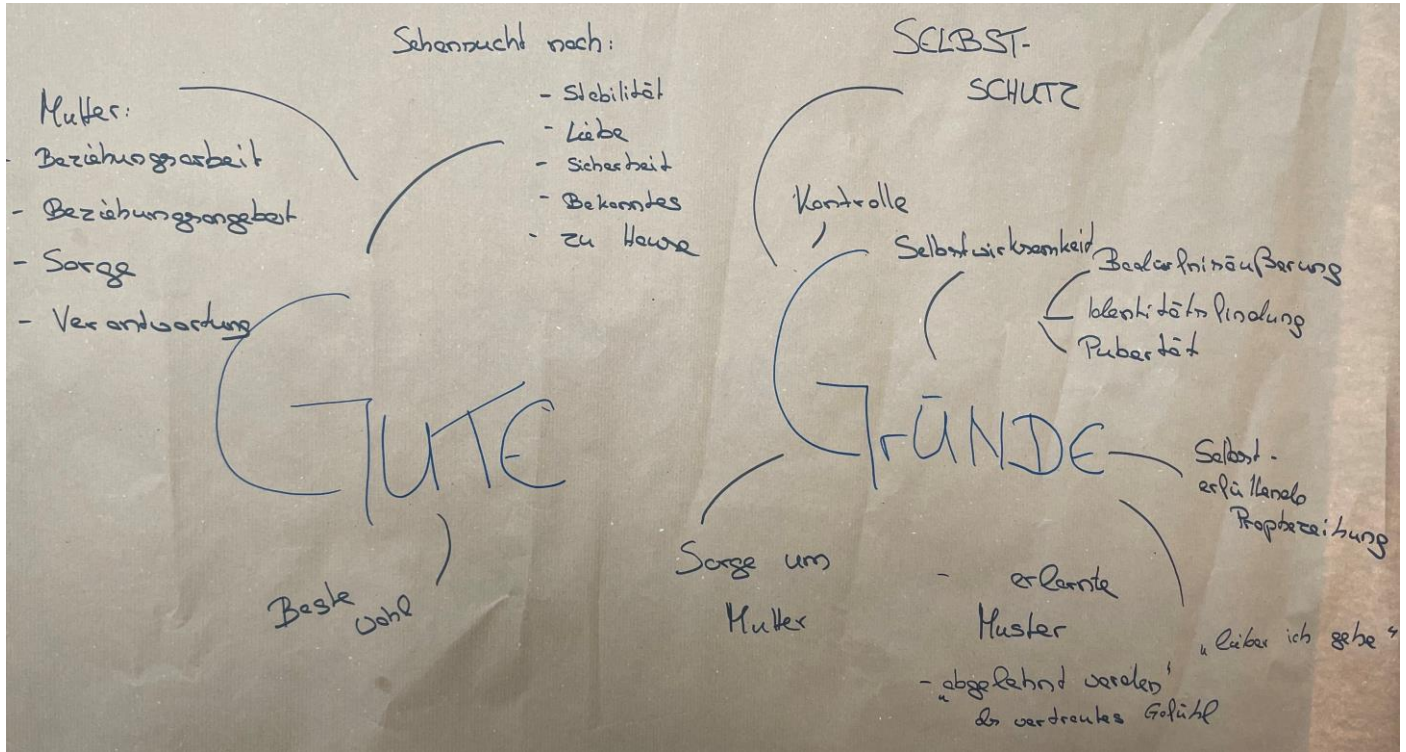 Mutter:
- Beziehungsarbeit
- Beziehungsangebot
- Sorge
- Verantwortung
Sehnsucht nach:
- Stabilität
- Liebe
- Sicherheit
- Bekanntes
- zu Hause
SELBST-
SCHUTZ
Kontrolle
Selbstwirksamkeit
Bedürfnisäußerung
Identitätsfindung
Pubertät
GUTE GrÜNDE
Selbst-
erfüllende
Prophezeihung
Beste
Wahl
Sorge um
Mutter
- erlernte
Muster
- „abgelehnt werden"
als vertrautes Gefühl
„lieber ich gehe"